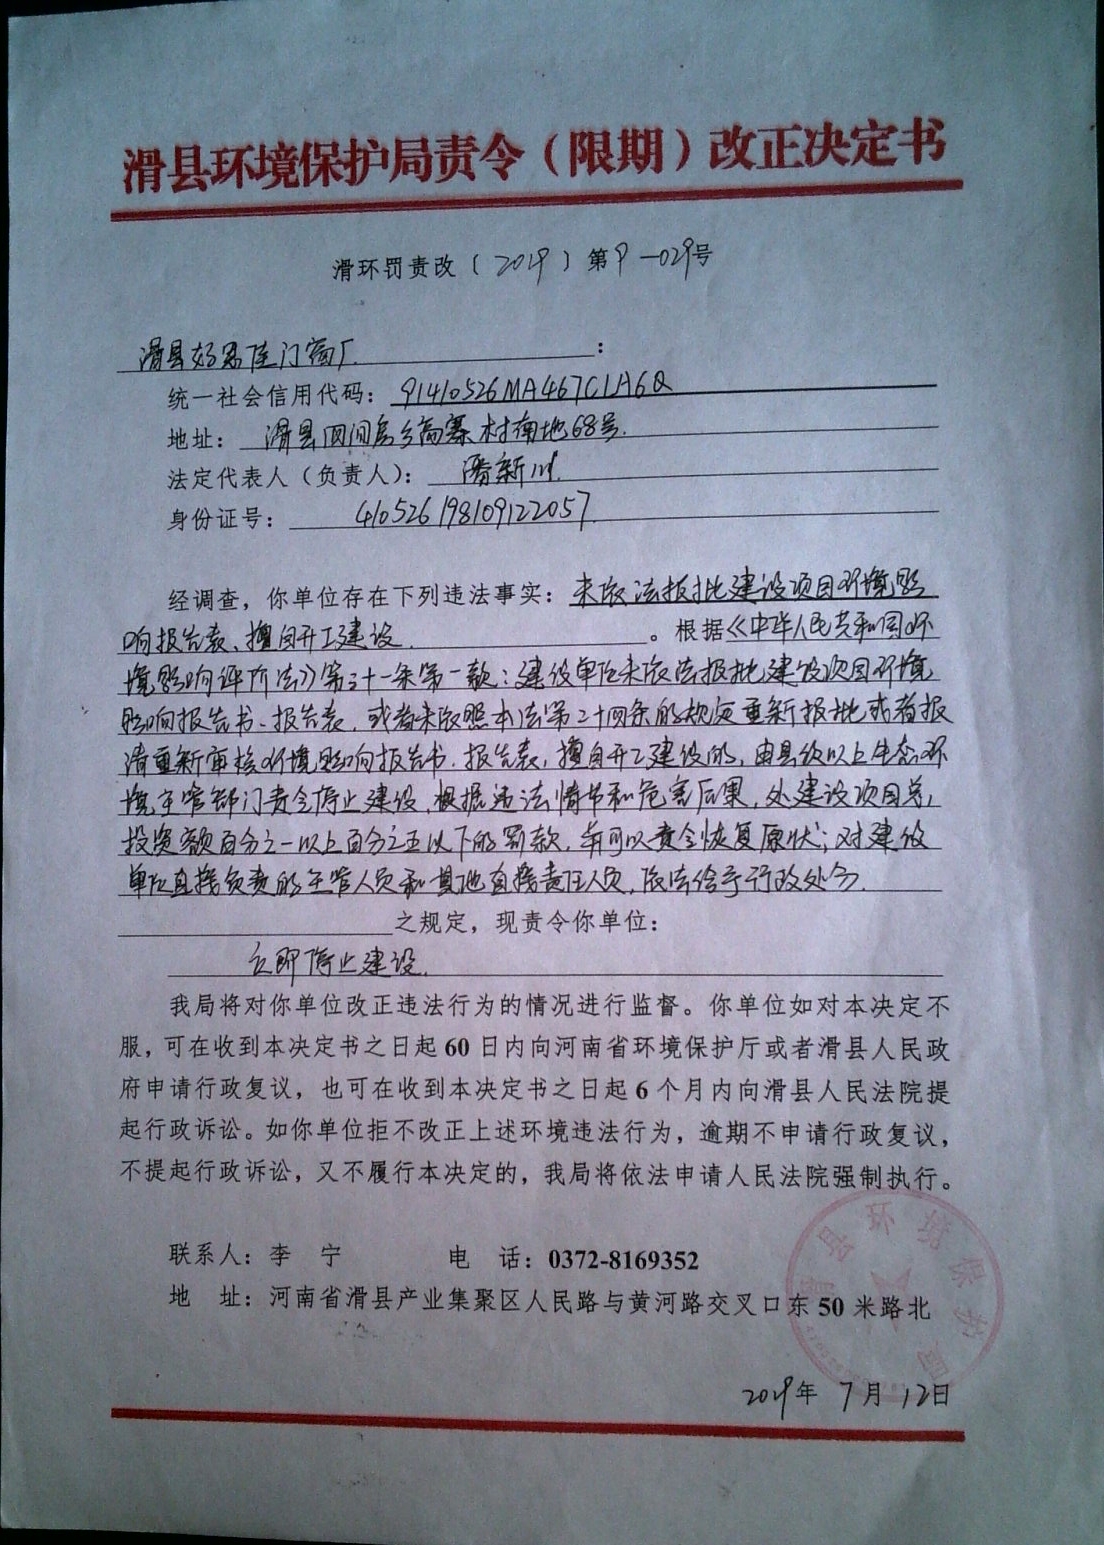 滑县环境保护局责令（限期）改正决定书
滑环罚责改（2019）第9-029号
滑县好思佳门窗厂：
统一社会信用代码：91410526MA467C1A6Q
地址：滑县四间房乡高寨村南地68号.
法定代表人（负责人）：潘新川.
身份证号：410526198109122057
经调查，你单位存在下列违法事实：未依法报批建设项目环境影
响报告表、擅自开工建设.。根据《中华人民共和国环
境影响评价法》第三十一条第一款：建设单位未依法报批建设项目环境
影响报告书、报告表，或者未依照本法第二十四条的规定重新报批或者报
请重新审核环境影响报告书、报告表，擅自开工建设的，由县级以上生态环
境主管部门责令停止建设，根据违法情节和危害后果，处建设项目总
投资额百分之一以上百分之五以下的罚款，并可以责令恢复原状；对建设
单位直接负责的主管人员和其他直接责任人员，依法给予行政处分.
之规定，现责令你单位：
立即停止建设.
我局将对你单位改正违法行为的情况进行监督。你单位如对本决定不
服，可在收到本决定书之日起60日内向河南省环境保护厅或者滑县人民政
府申请行政复议，也可在收到本决定书之日起6个月内向滑县人民法院提
起行政诉讼。如你单位拒不改正上述环境违法行为，逾期不申请行政复议，
不提起行政诉讼，又不履行本决定的，我局将依法申请人民法院强制执行。
联系人：李 宁 电 话：0372-8169352
地 址：河南省滑县产业集聚区人民路与黄河路交叉口东50米路北
滑县环境保护局
2019年7月12日